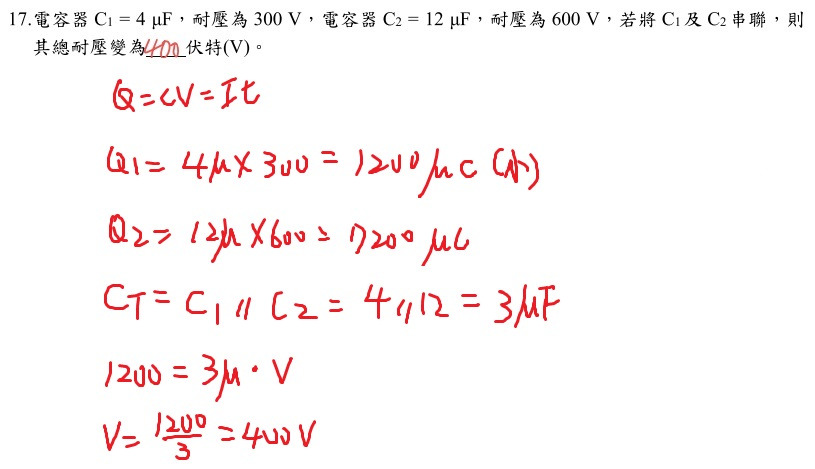 17.電容器 C₁ = 4 μF，耐壓為 300 V，電容器 C₂ = 12 μF，耐壓為 600 V，若將 C₁ 及 C₂ 串聯，則
其總耐壓變為400伏特(V)。
Q=CV=It
Q1= 4μ×300 = 1200μC (小)
Q2= 12μ×600= 7200μC
CT= C1 // C2 = 4//12 = 3μF
1200 = 3μ·V
V= 1200/3 = 400V